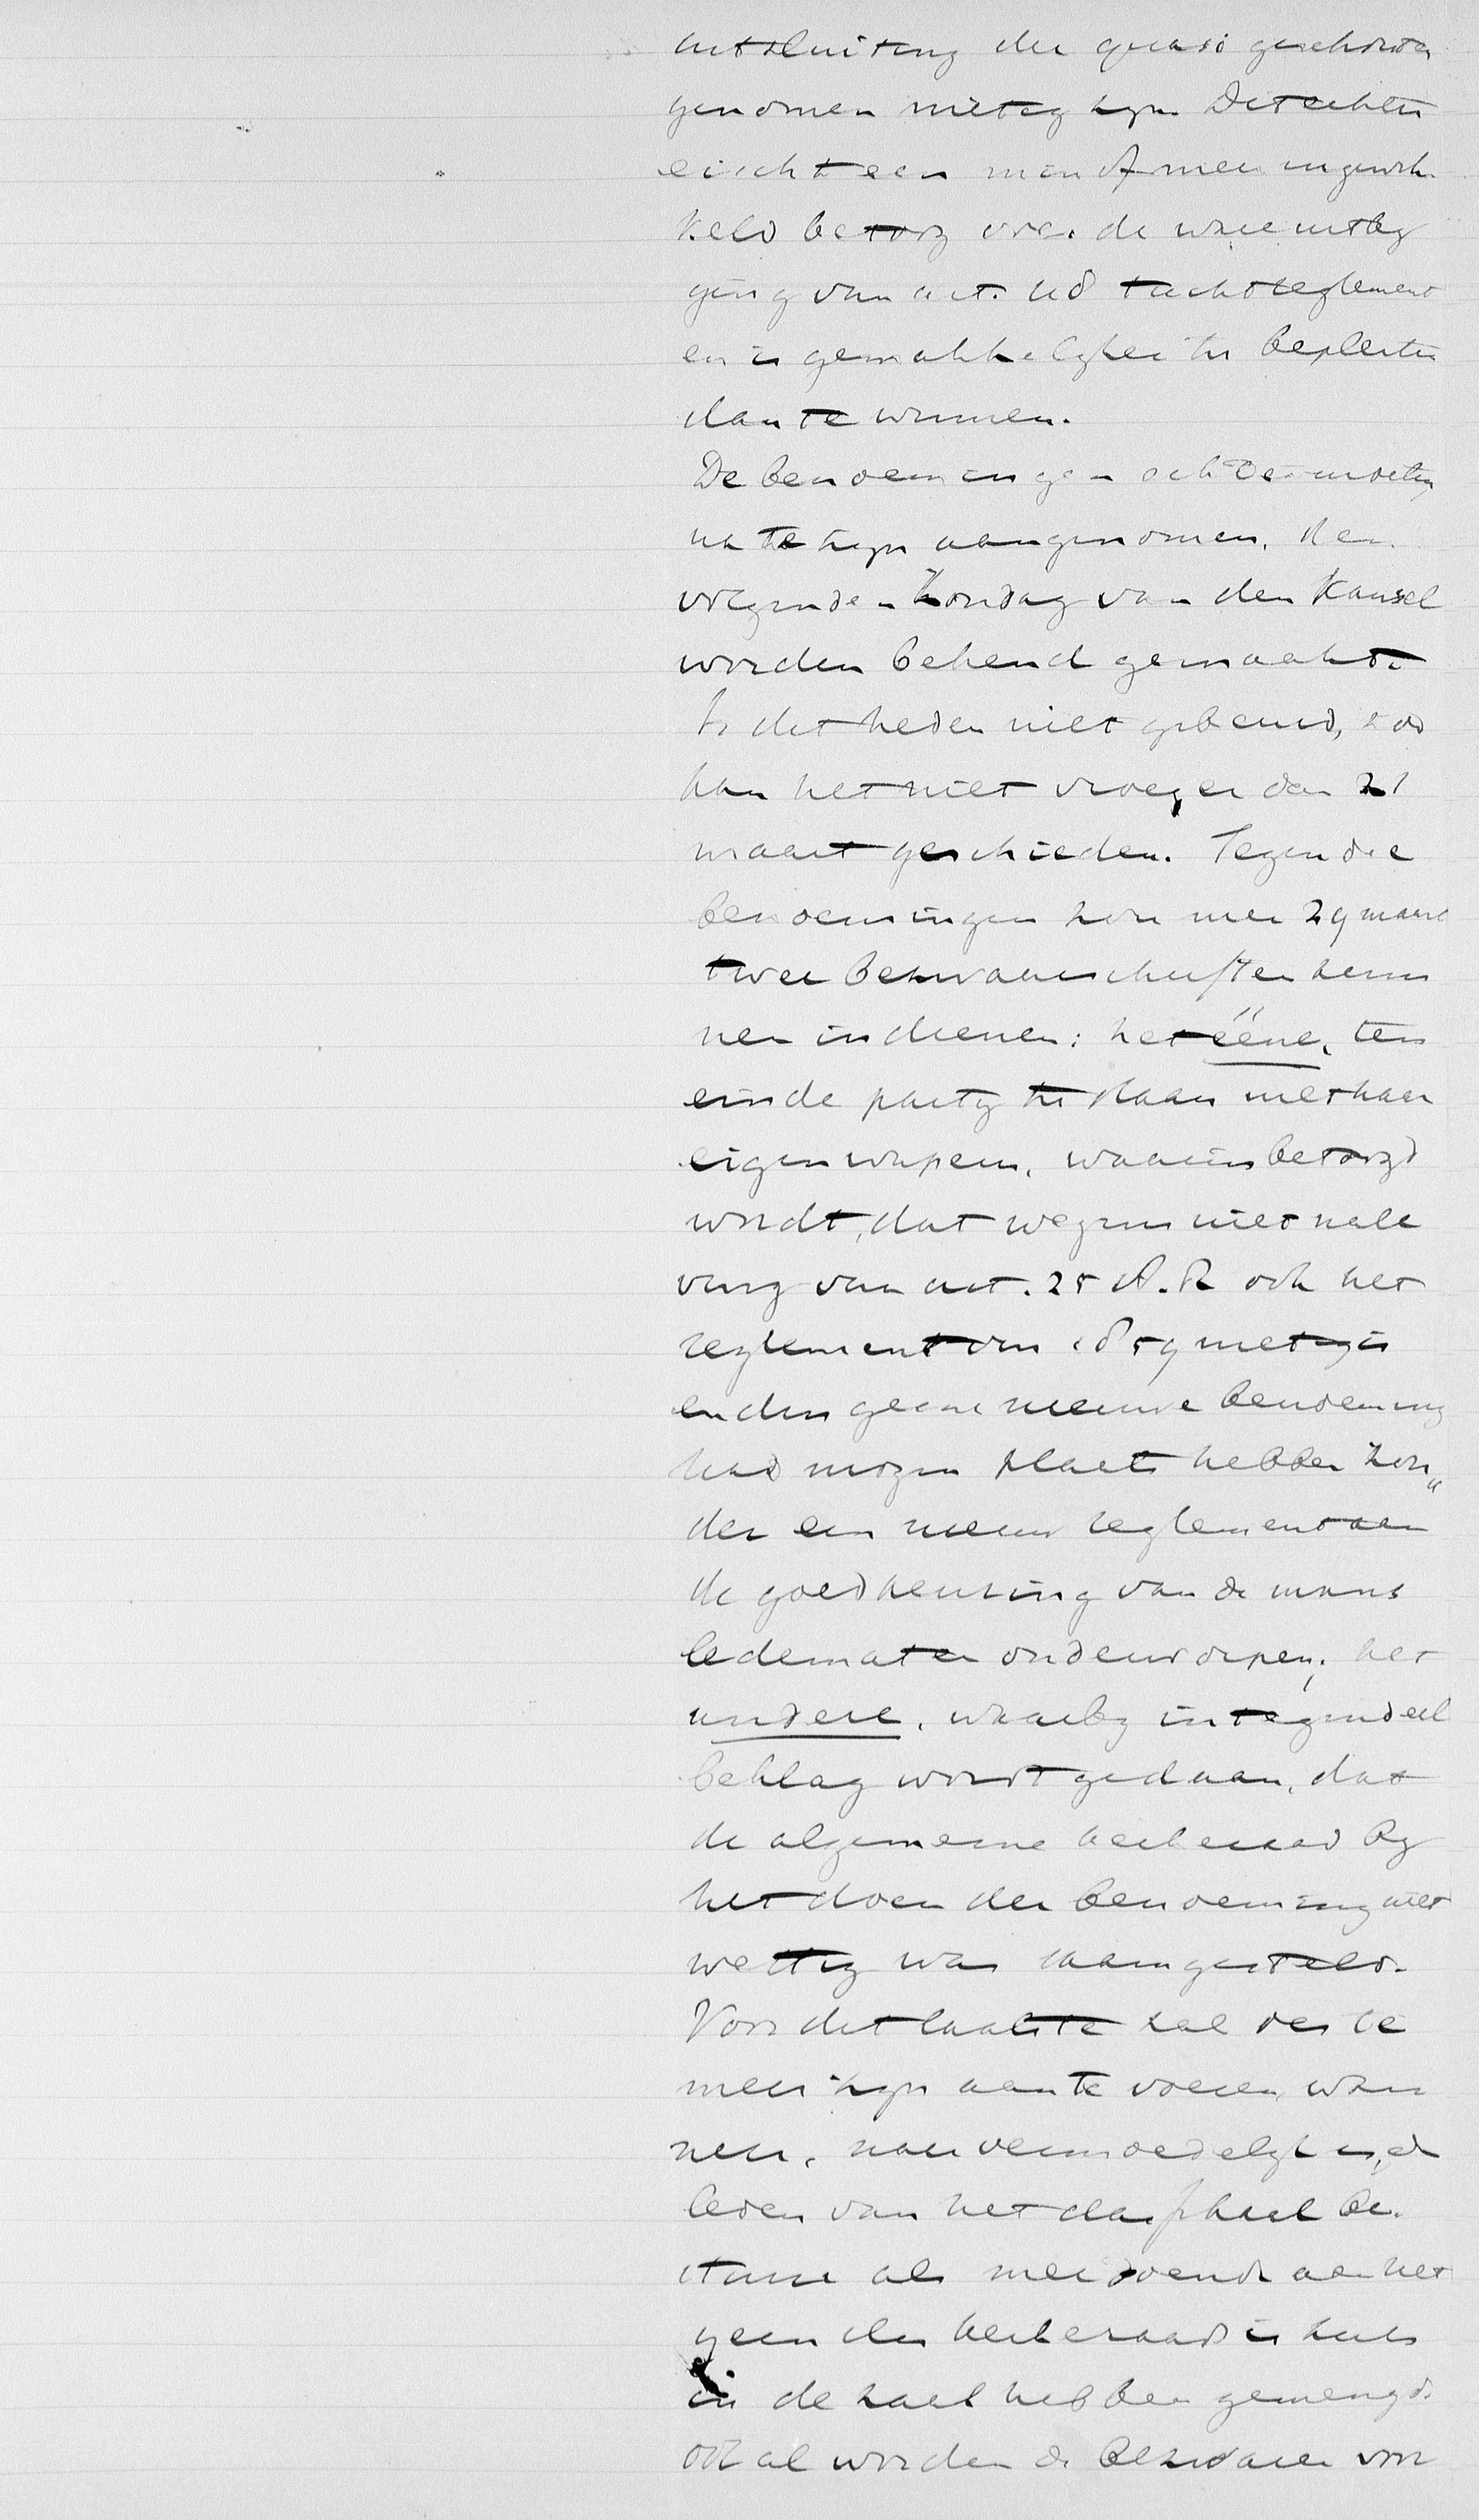 uitsluiting der quasi geschorsten
genomen nietig zyn. Dit echter
eischt een min of meer ingewik
keld betoog over de ware uitleg
ging van art. tuchtreglement
en is gemakkelyker te bepleiten
dan te winnen.
De benoemingen echter moeten
na te zyn aangenomen, den
volgenden Zondag van den Kansel
worden bekend gemaakt.
Is dit heden niet gebeurd, zoo
kan het niet vroeger dan 21
maart geschieden. Tegen die
benoemingen zou men 29 maart
twee bezwaarschriften kun
nen indienen: het ééne, ten
einde party te slaan met haar
eigen wapens, waarin betoogd
wordt, dat wegens niet nale
ving van art. 25 A.R ook het
reglement van 1859 nietig is
en dus geene nieuwe benoeming
had mogen plaats hebben zon„
der een nieuw reglement aan
de goedkeuring van de mans
ledematen onderworpen; het
andere, waarby in tegendeel
beklag wordt gedaan, dat
de algemeene kerkeraad by
het doen der benoeming niet
wettig was saamgesteld.
Voor dit laatste zal des te
meer zyn aan te voeren, wan
neer, naar vermoedelyk is, de
leden van het classikaal be.
stuur als meidoende aan het
geen des kerkeraads is zich
in de zaak hebben gemengd.
Ook al worden de bezwaren voor